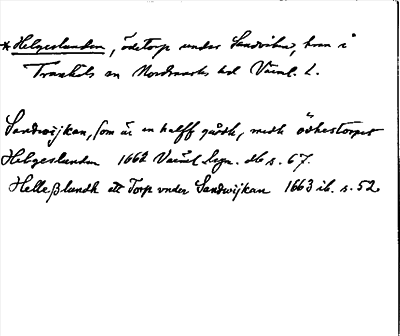 *Helgeslunden, ödetorp under Sandviken, hmn i
Trankils sn Nordmarks hd Värml. l.
Sandwijkan, som är en halff gårdh, medh ödhestorpet
Helgeslunden 1662 Värml. lgn. db s. 67.
Helleßlundh ett Torp vnder Sandwijkan 1663 ib. s. 52